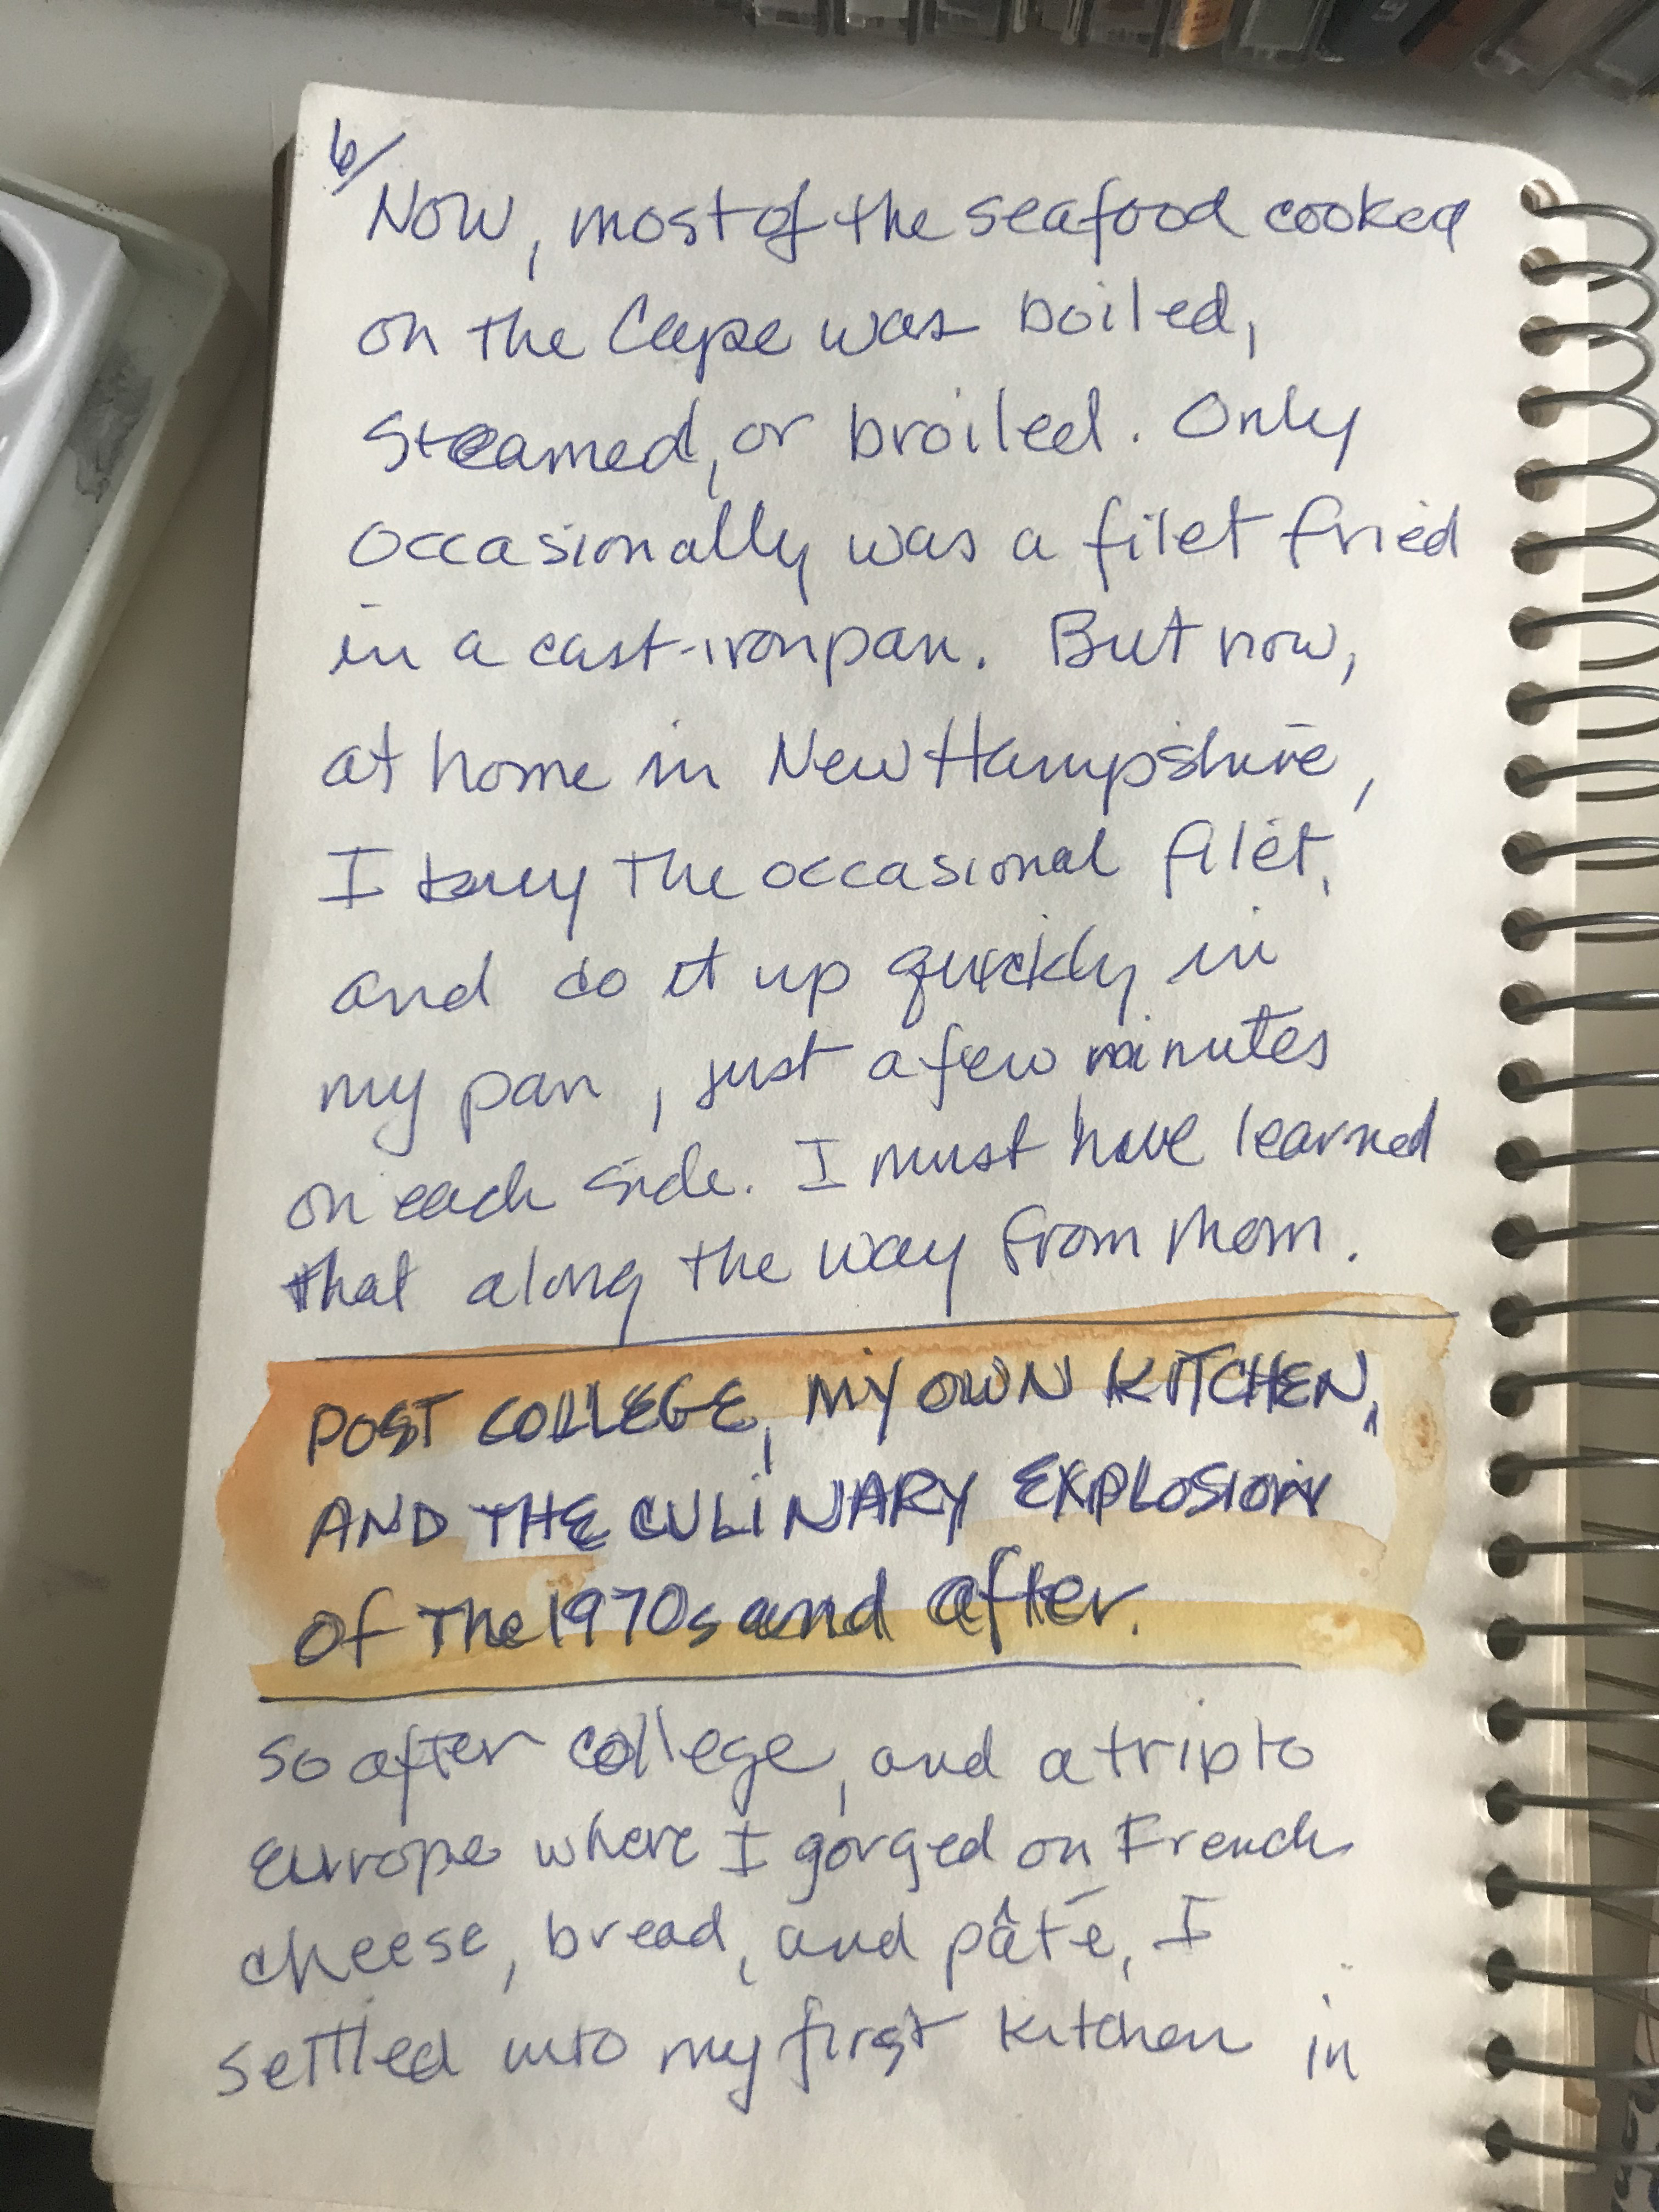 6/
Now, most of the seafood cooked
on the Cape was boiled,
steamed, or broiled. Only
occasionally was a filet fried
in a cast-iron pan. But now,
at home in New Hampshire,
I buy the occasional filet,
and do it up quickly in
my pan, just a few minutes
on each side. I must have learned
that along the way from Mom.
POST COLLEGE, MY OWN KITCHEN,
AND THE CULINARY EXPLOSION
Of The 1970s and after.
So after college, and a trip to
Europe where I gorged on French
cheese, bread, and pâté, I
settled into my first kitchen in